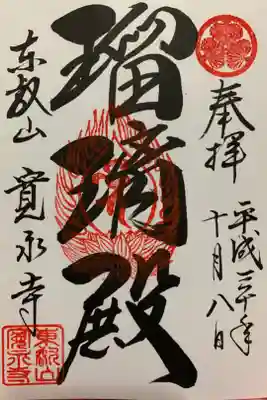 奉拝
平成三十年
十月八日
瑠璃殿
東叡山
寛永寺
東叡山
寛永寺